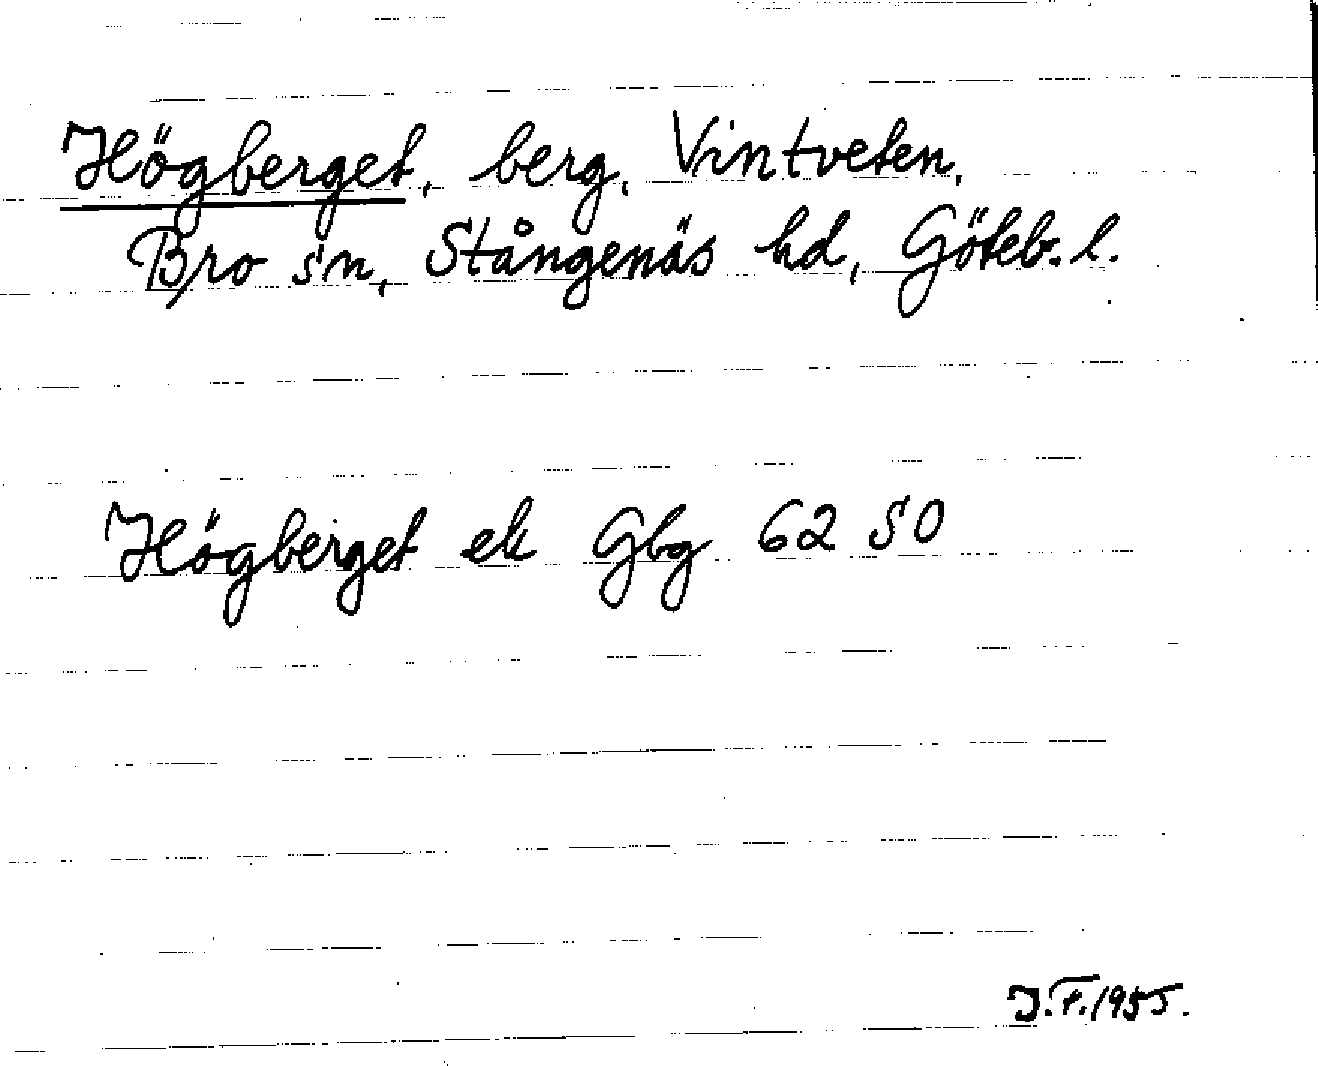 Högberget, berg, Vintveten,
Bro sn, Stångenäs hd, Göteb. l.
Högberget ek Gbg 62 SO
J.F. 1955.